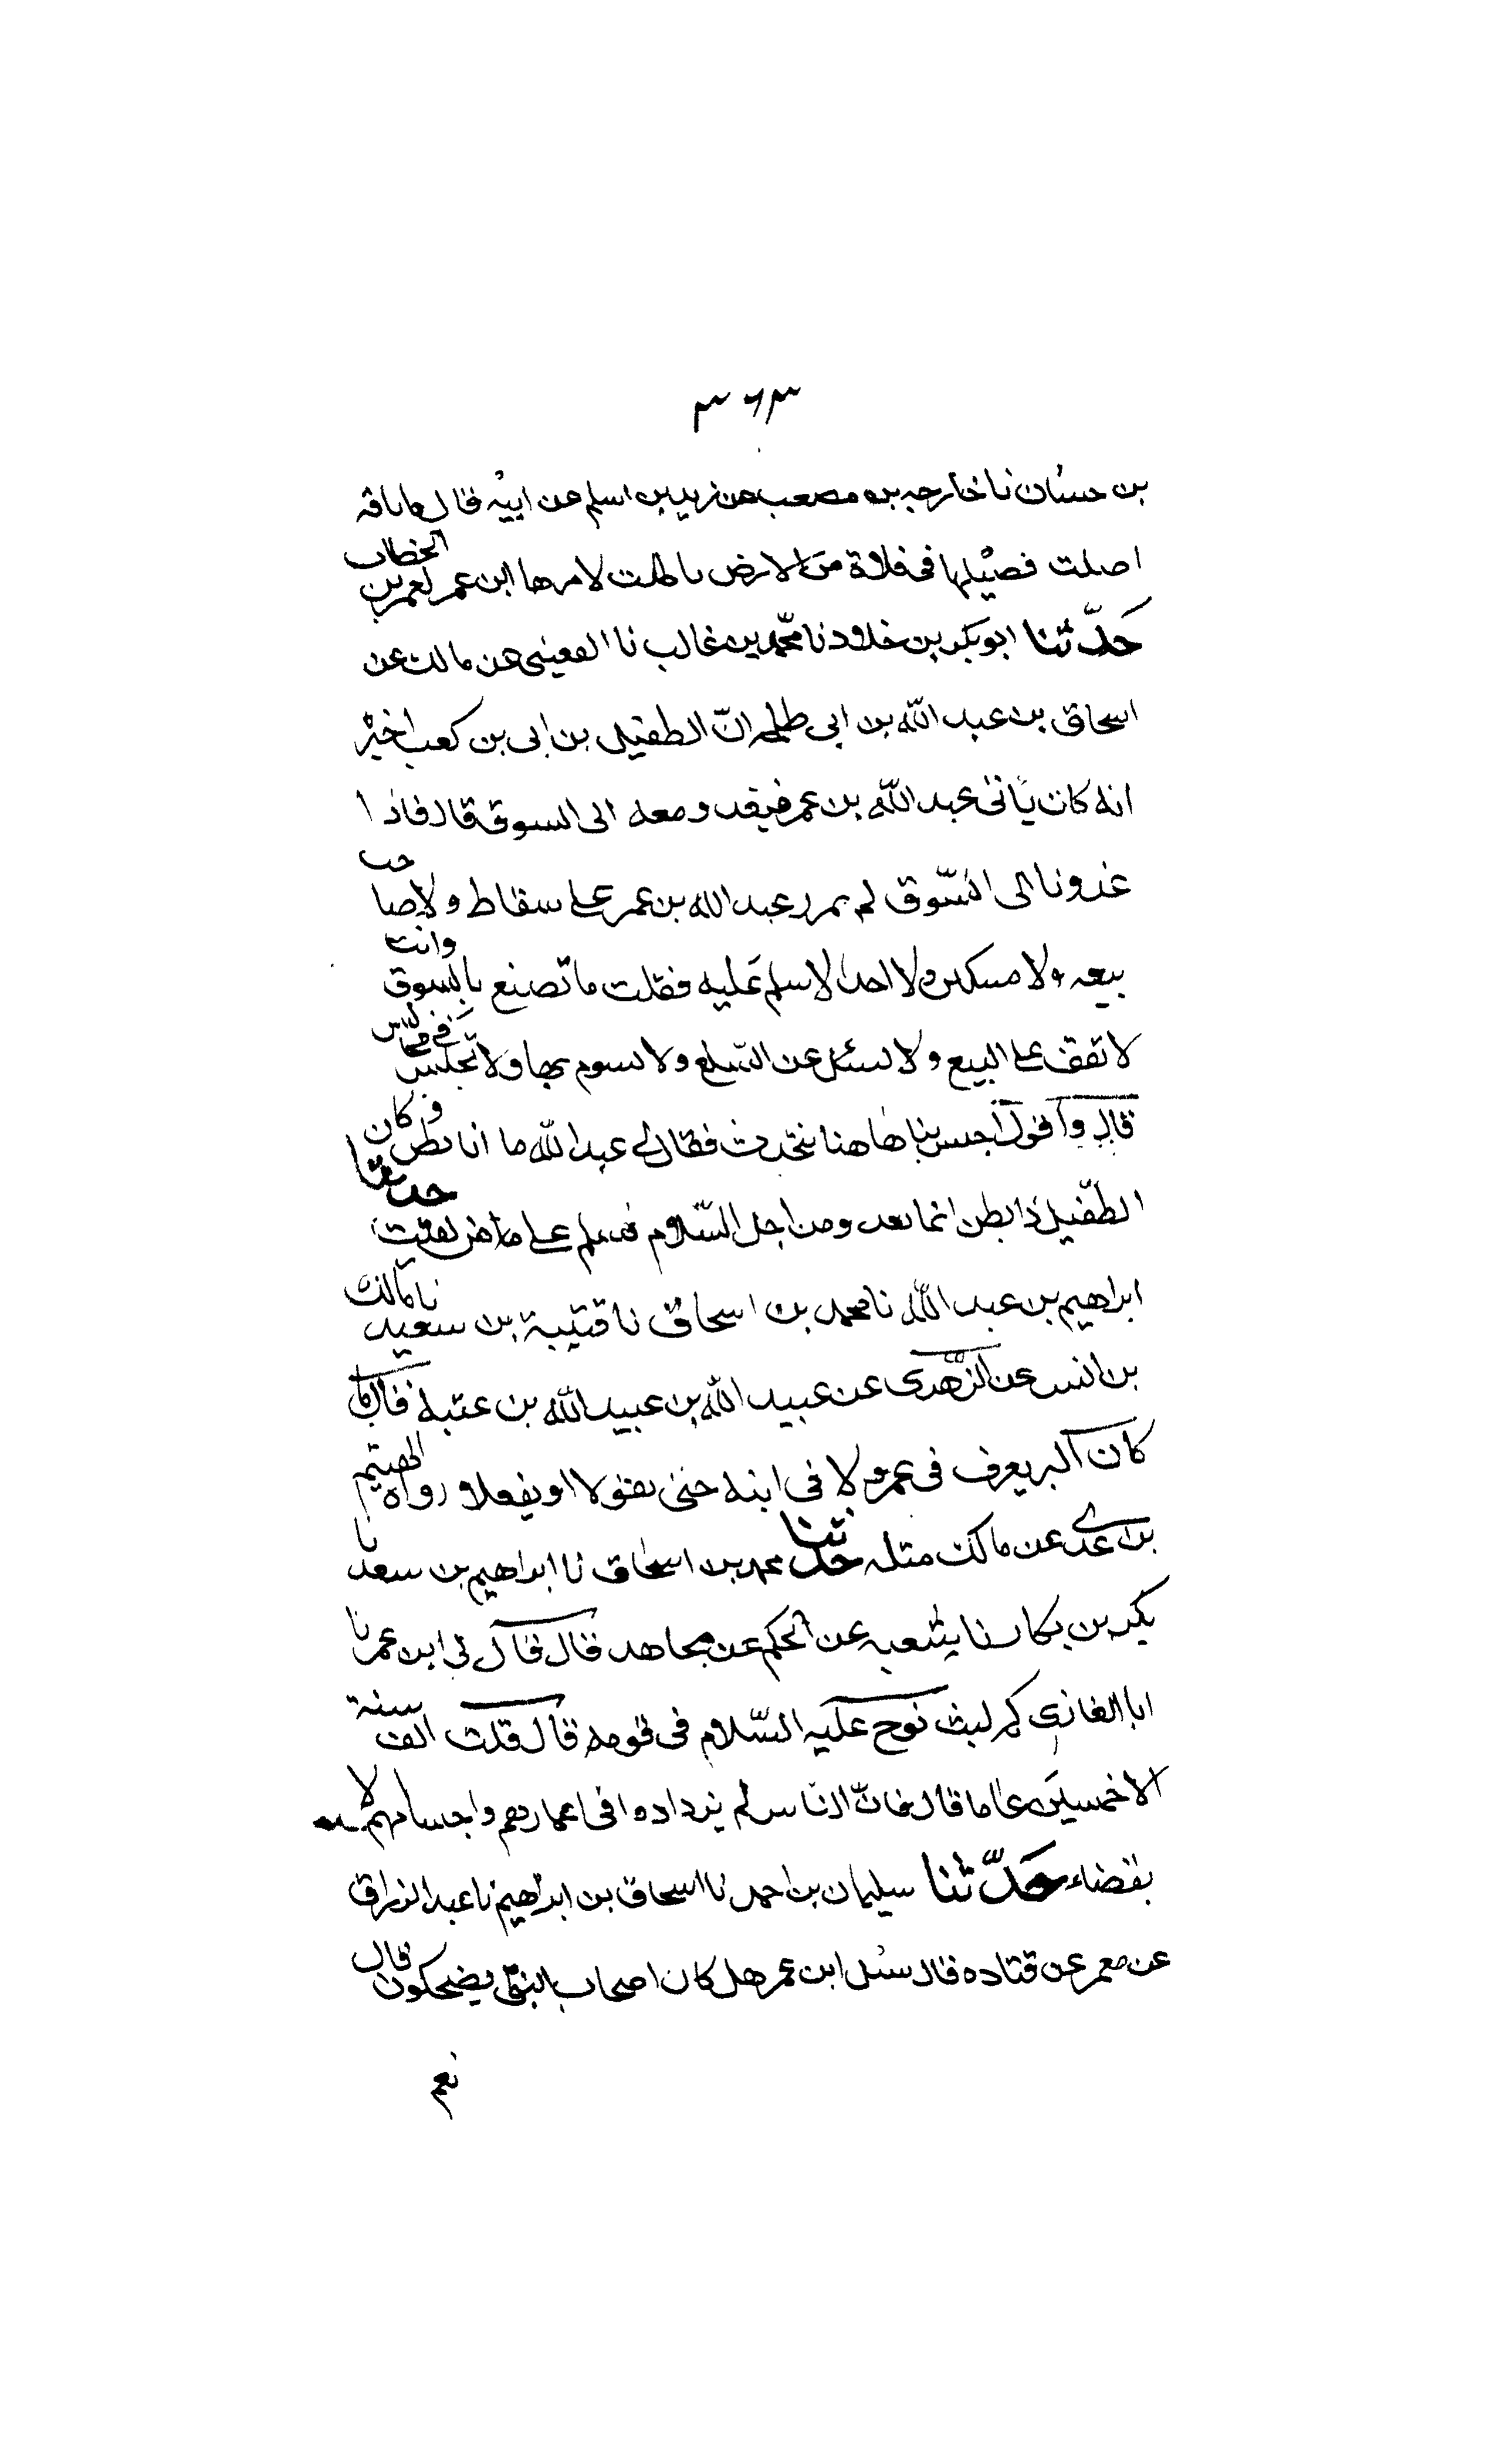 ٣٦٣
بن حسان نا خارجه بن مصعب عن زيد بن اسلم عن ابيه قال ما ناقه
اصلت فصيلها فى فلاة من الارض باطلت لامرها ابن عمر لعمر بن الخطاب
حدّثنا ابو بكر بن خلاد نا محمّد بن غالب نا القعنبى عن مالك عن
اسحاق بن عبد اللّه بن ابى طلحه انّ الطفيل بن ابى بن كعب اخبر
انه كان يأتى عبد اللّه بن عمر فيغدو معه الى السوق قال فاذا
غدونا الى السّوق لم يمرر عبد الله بن عمر على سقاط ولا صاحب
بيعه ولا مسكين ولا احد الا سلم عليه فقلت ما تصنع بالسوق وانت
لا تقف على البيع ولا تسئل عن السّلع ولا تسوم بها ولا تجلس فى مجالس
قال واقول اجلس بنا هاهنا نتحدث فقال لى عبد اللّه ما انا بطن وكان
الطّفيل ذا بطن انما نغدو من اجل السّلام فسلم على من لقيت حدثنا
ابراهيم بن عبد اللّه نا محمد بن اسحاق نا قتيبة بن سعيد نا مالك
بن انس عن الزّهرى عن عبيد اللّه بن عبيد اللّه بن عتبة قال ما
كان البر يعرف فى عمر ولا فى ابنه حتى يقولا او يفعلا رواه الهيثم
بن عدى عن مالك مثله حدثنا محمد بن اسحاق نا ابراهيم بن سعد نا
بكير بن بكار نا شعبه عن الحكم عن مجاهد قال قال لى ابن عمر يا
ابا الغازى كم لبث نوح عليه السّلام فى قومه قال قلت الف سنة
الا خمسين عاما قال فانّ الناس لم يزدادوا فى اعمارهم واجسامهم الا
بقضاء حدّثنا سليمان بن احمد نا اسحاق بن ابراهيم نا عبد الرزاق
عن معمر عن قتاده قال سئل ابن عمر هل كان اصحاب النبى يضحكون قال
نعم